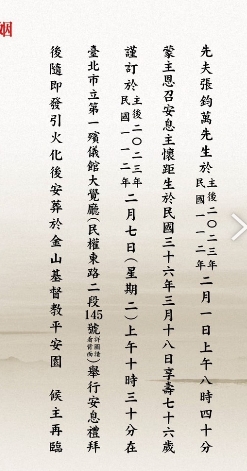 姻
先夫張鈞萬先生於主後二〇二三年民國一一二年二月一日上午八時四十分
蒙主恩召安息主懷距生於民國三十六年三月十八日享壽七十六歲
謹訂於主後二〇二三年民國一一二年二月七日(星期二)上午十時三十分在
臺北市立第一殯儀館大覺廳(民權東路二段145號詳圖請看背面)舉行安息禮拜
後隨即發引火化後安葬於金山基督教平安園 候主再臨